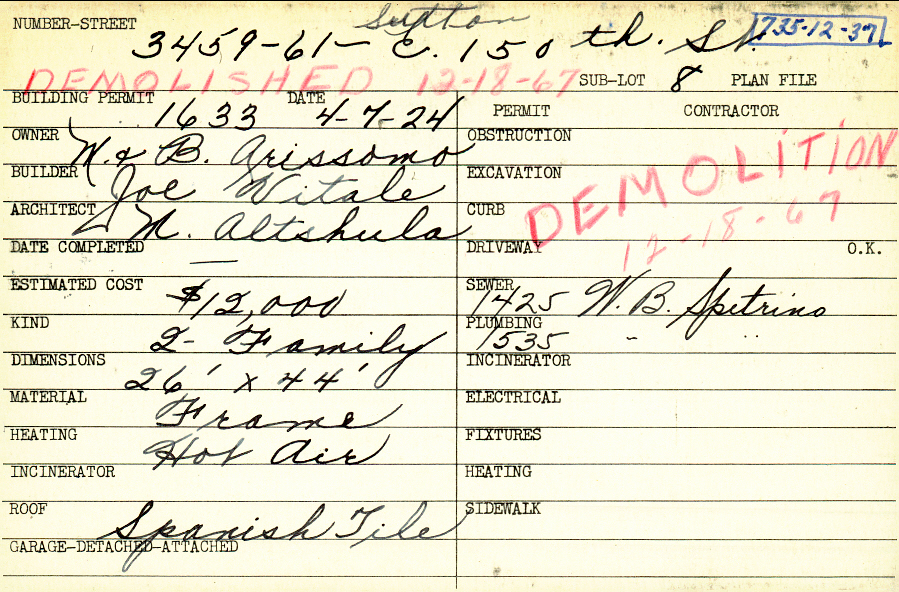 NUMBER-STREET Sutton
3459-61- E. 150 th. St. 735-12-37
DEMOLISHED 12-18-67 SUB-LOT 8 PLAN FILE
BUILDING PERMIT 1633 DATE 4-7-24 PERMIT CONTRACTOR
OWNER M. & B. Arissomo OBSTRUCTION
BUILDER Joe Vitale EXCAVATION DEMOLITION
ARCHITECT M. Altshula CURB 12-18-67
DATE COMPLETED — DRIVEWAY O.K.
ESTIMATED COST $12,000 SEWER 1425 W. B. Spetrino
KIND 2- Family PLUMBING 1535 " "
DIMENSIONS 26' x 44' INCINERATOR
MATERIAL Frame ELECTRICAL
HEATING Hot Air FIXTURES
INCINERATOR HEATING
ROOF Spanish Tile SIDEWALK
GARAGE-DETACHED-ATTACHED